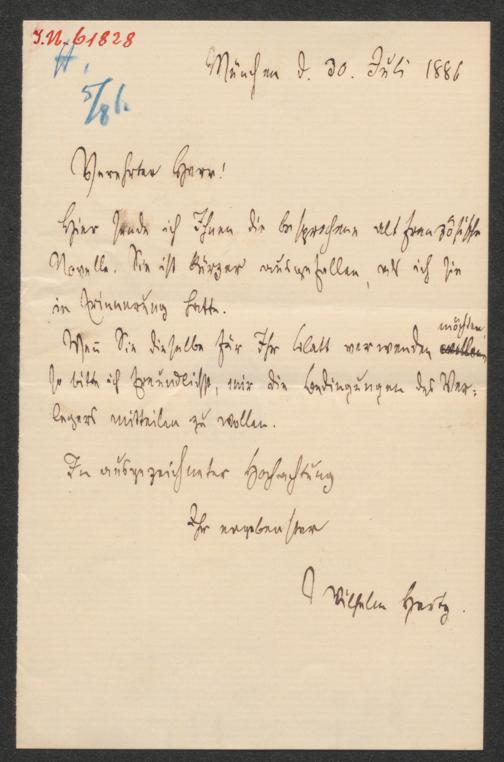 J.N. 61828
A.
5/86.
München d. 30. Juli 1886
Verehrter Herr!
Hier sende ich Ihnen die besprochene altfranzösische
Novelle. Sie ist kürzer ausgefallen, als ich sie
in Erinnerung hatte.
möchten,
Wenn Sie dieselbe für Ihr Blatt verwenden wollen
so bitte ich freundlichst, mir die Bedingungen des Ver-
legers mitteilen zu wollen.
In ausgezeichneter Hochachtung
Ihr ergebenster
Wilhelm Hertz.